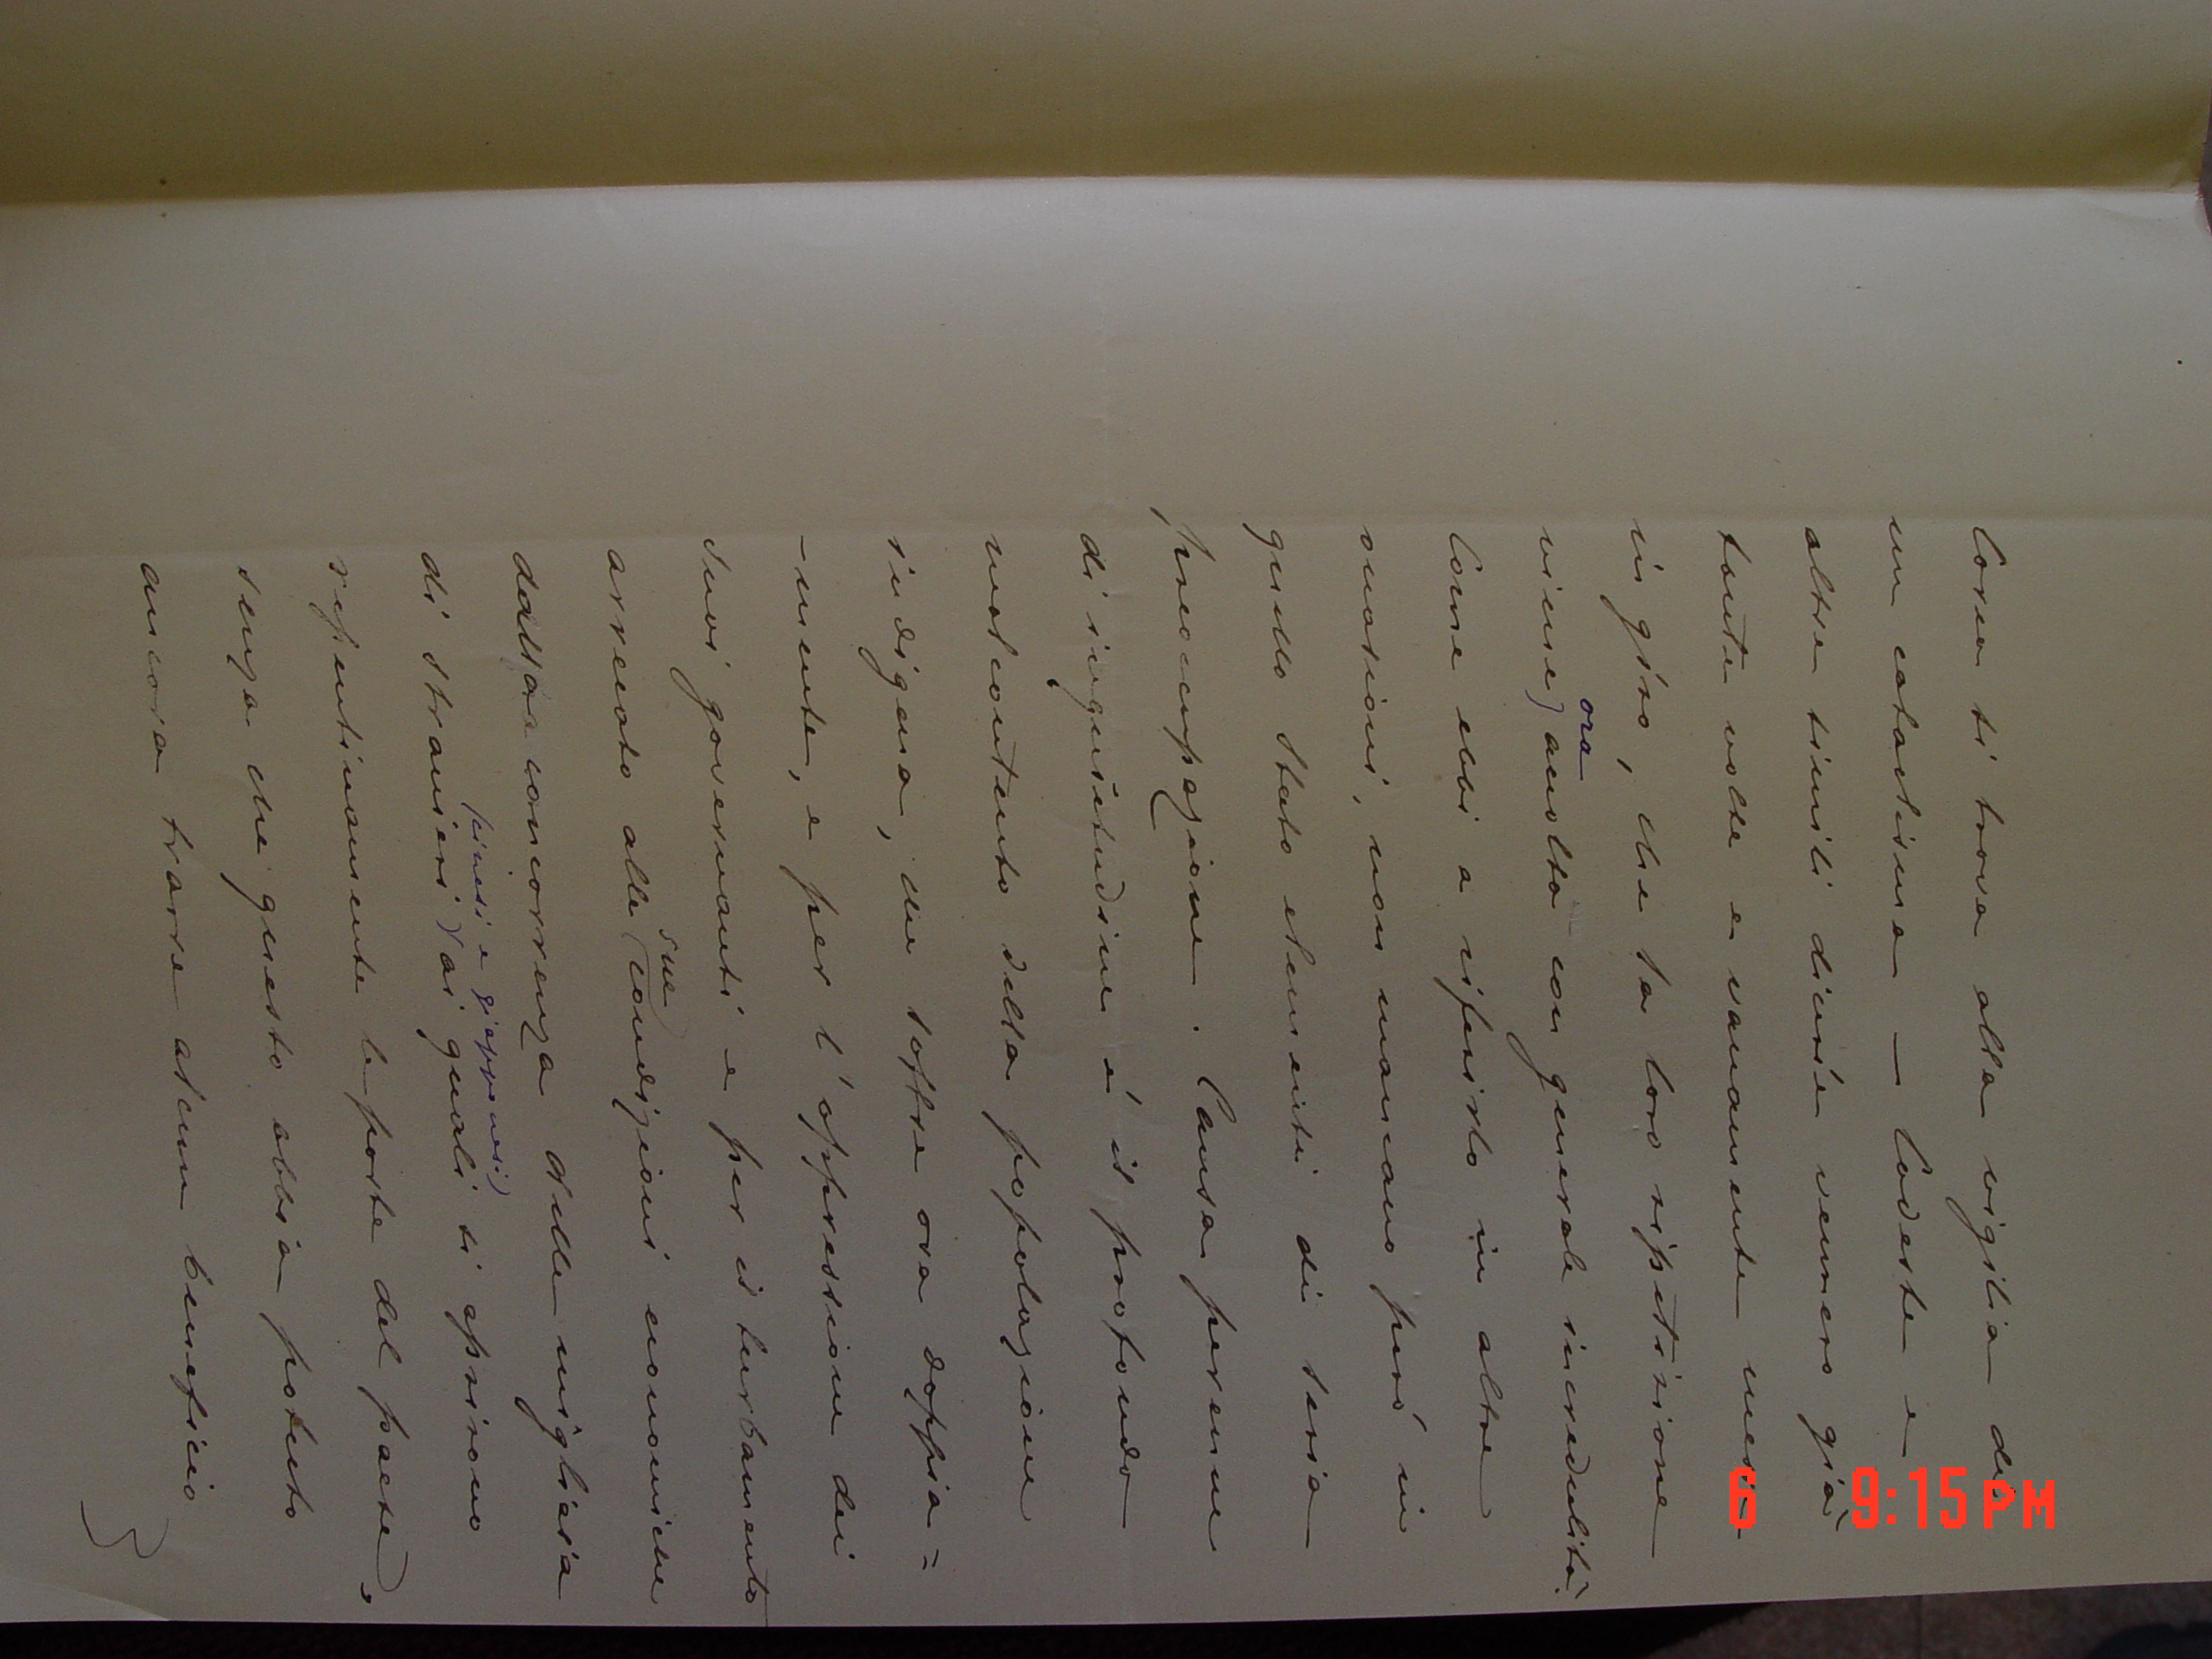 Corea si trova alla vigilia di
un cataclisma — Codeste e
altre simili dicerie vennero già
tante volte e vanamente messe
in giro, che la loro ripetizione
viene) ora accolta con generale incredulità.
Come ebbi a riferirlo in altre
occasioni, non mancano però in
quello Stato elementi di seria
preoccupazione. Causa perenne
di inquietudine è il profondo
malcontento della popolazione
indigena, che soffre ora doppia=
-mente, e per l'oppressione dei
suoi governanti e per il turbamento
arrecato alle (sue) condizioni economiche
dalla concorrenza delle migliaia
di stranieri (cinesi e giapponesi) ai quali si aprirono
repentinamente le porte del paese,
senza che questo abbia potuto
ancora trarre alcun beneficio
6 9:15 PM